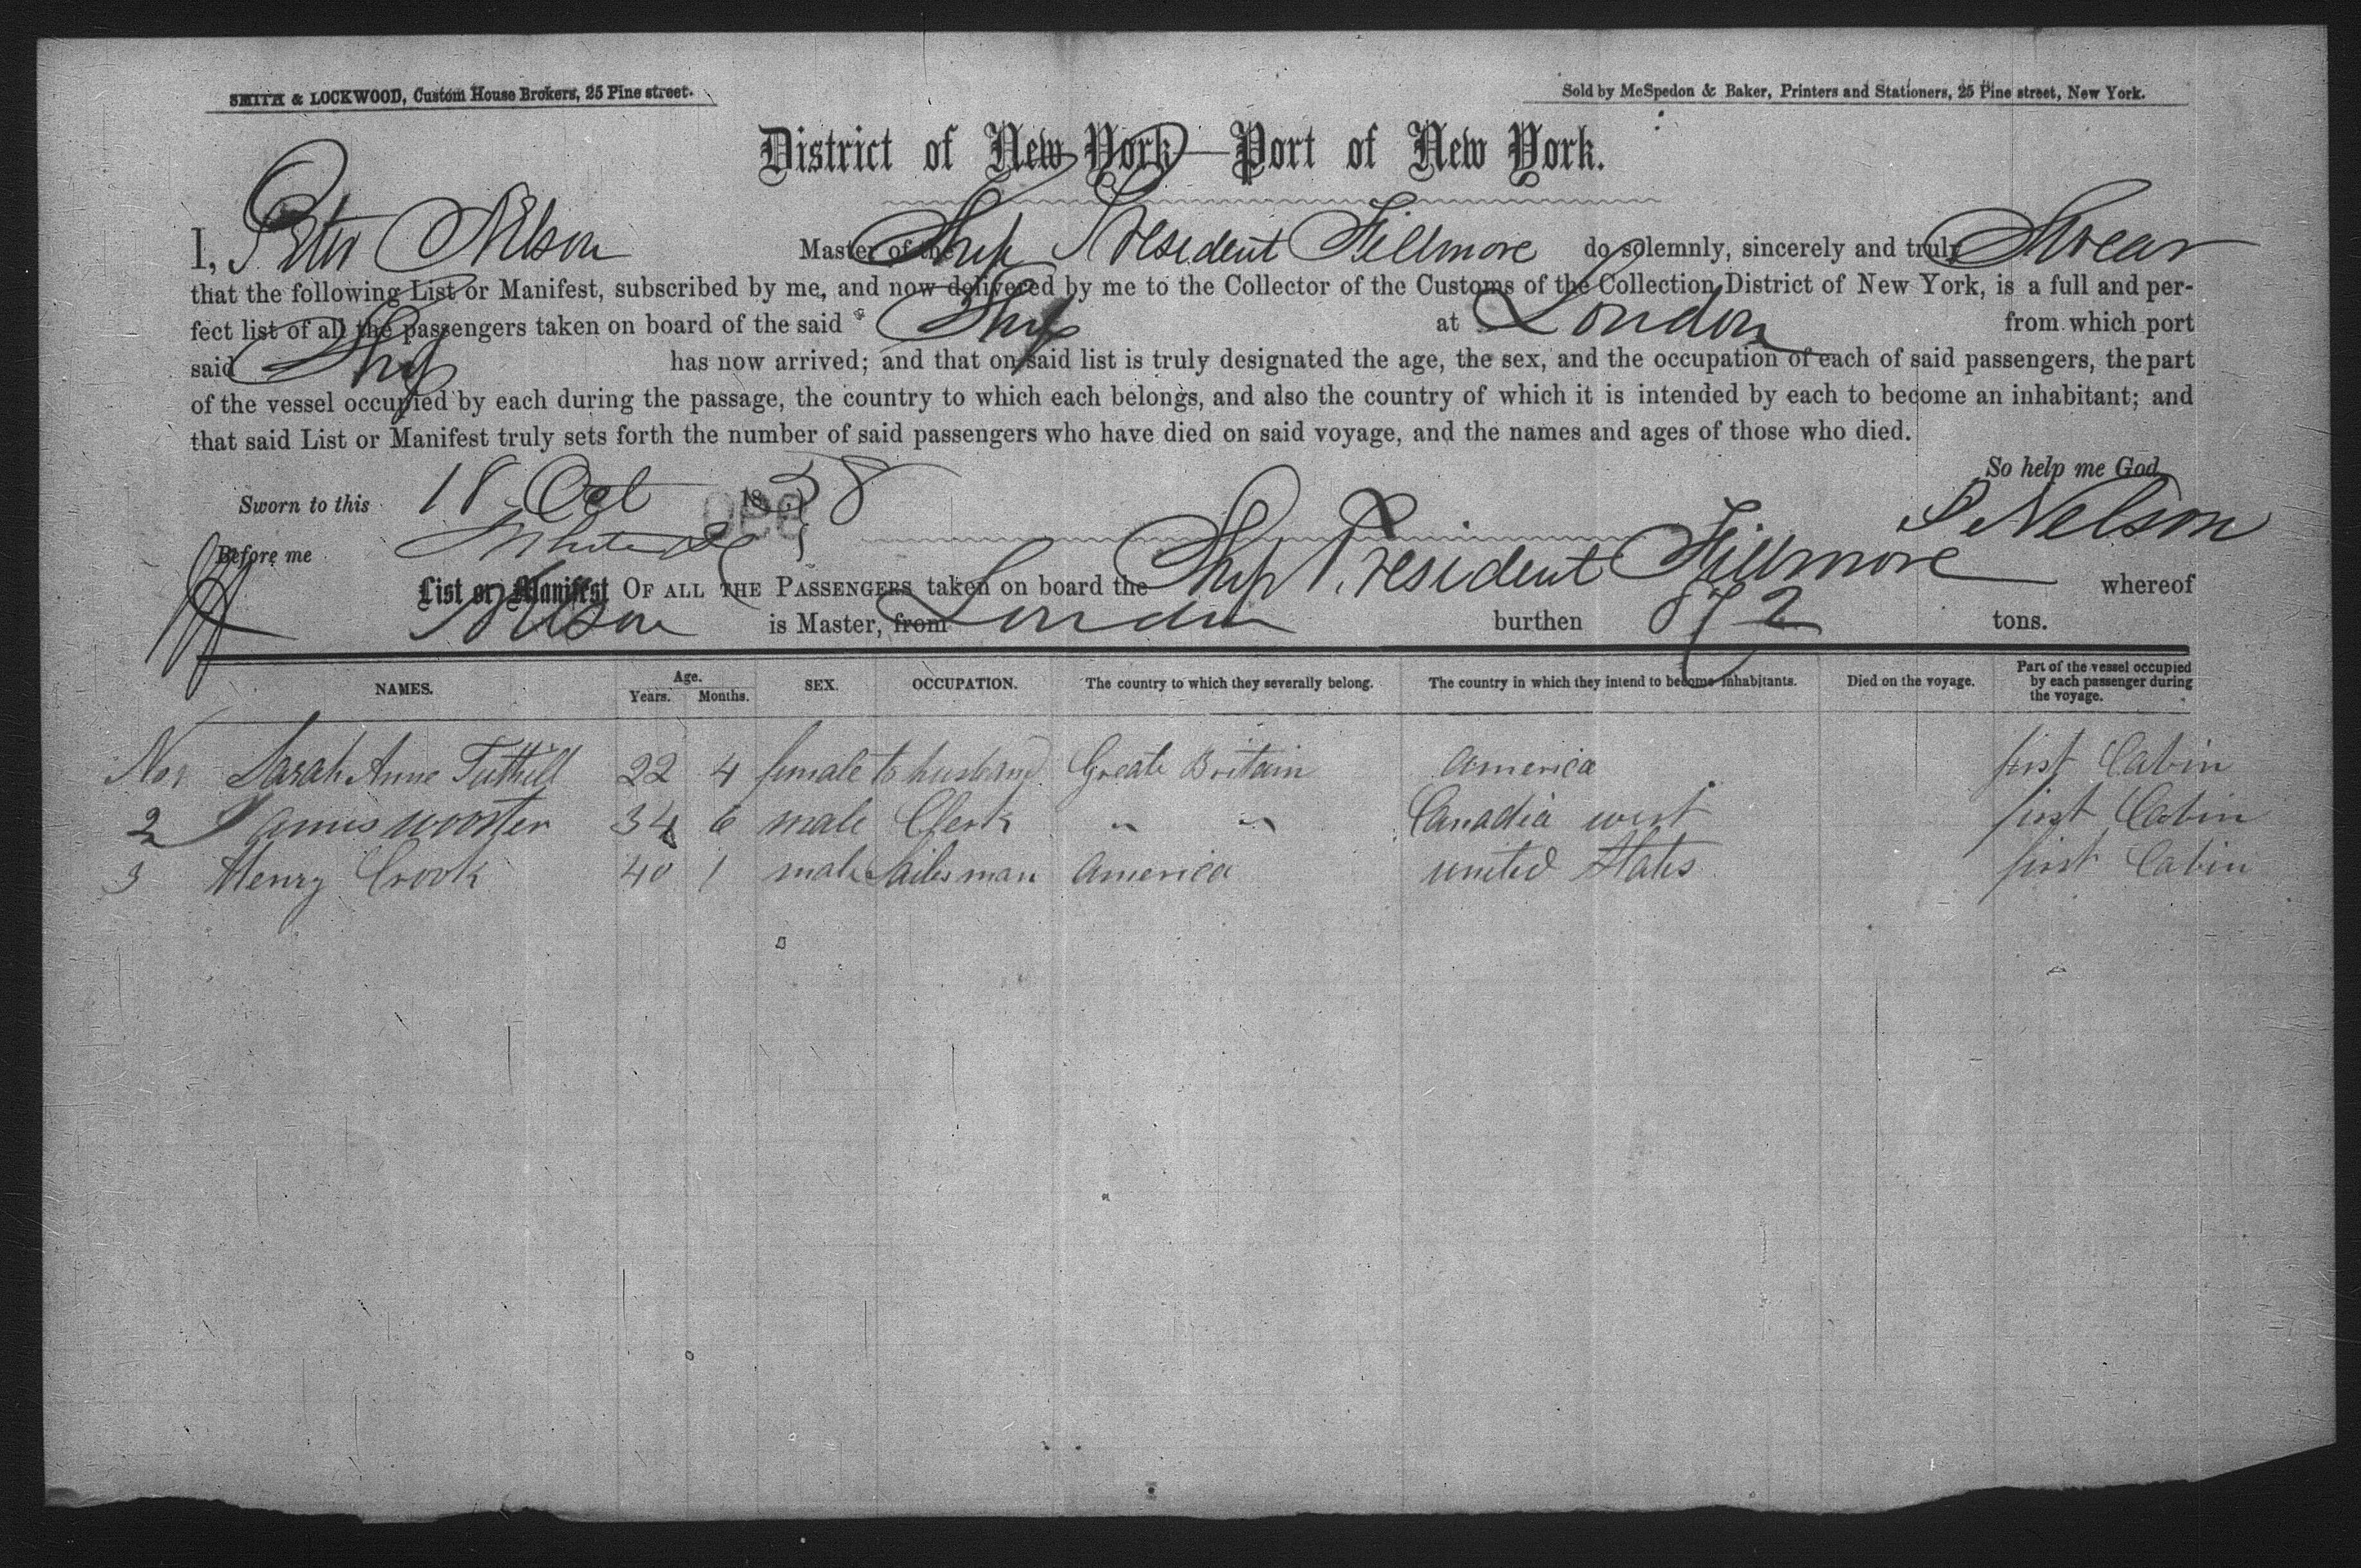 SMITH & LOCKWOOD, Custom House Brokers, 25 Pine street.
Sold by McSpedon & Baker, Printers and Stationers, 25 Pine street, New York.
District of New York—Port of New York.
I, Peter Nelson Master of the Ship President Fillmore do solemnly, sincerely and truly Swear
that the following List or Manifest, subscribed by me, and now delivered by me to the Collector of the Customs of the Collection District of New York, is a full and per-
fect list of all the passengers taken on board of the said Ship at London from which port
said Ship has now arrived; and that on said list is truly designated the age, the sex, and the occupation of each of said passengers, the part
of the vessel occupied by each during the passage, the country to which each belongs, and also the country of which it is intended by each to become an inhabitant; and
that said List or Manifest truly sets forth the number of said passengers who have died on said voyage, and the names and ages of those who died.
So help me God
Sworn to this 18 Oct 1858
P Nelson
Before me
List or Manifest OF ALL THE PASSENGERS taken on board the Ship President Fillmore whereof
Nelson is Master, from London burthen 872 tons.
NAMES. Age. Years. Months. SEX. OCCUPATION. The country to which they severally belong. The country in which they intend to become inhabitants. Died on the voyage. Part of the vessel occupied by each passenger during the voyage.
No 1 Sarah Anne Tuthill 22 4 female to husband Greate Britain america first Cabin
2 James wooster 34 6 male Clerk " " Canadia west first Cabin
3 Henry Crook 40 1 male Sailesman america united States first Cabin